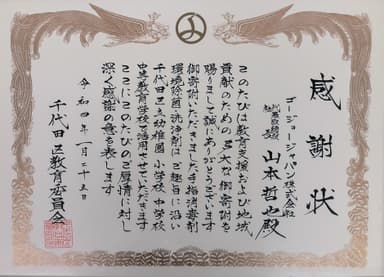 感謝状
ゴージョージャパン株式会社
代表取締役
社長
山本哲也殿
このたびは教育支援および地域
貢献のための多大な御寄附を
賜りまして誠にありがとうございます
御寄附いただきました手指消毒剤
環境除菌・洗浄剤はご趣旨に沿い
千代田区立幼稚園 小学校 中学校
中等教育学校で活用させていただきます
ここにこのたびのご厚情に対し
深く感謝の意を表します
令和四年一月二十五日
千代田区教育委員会